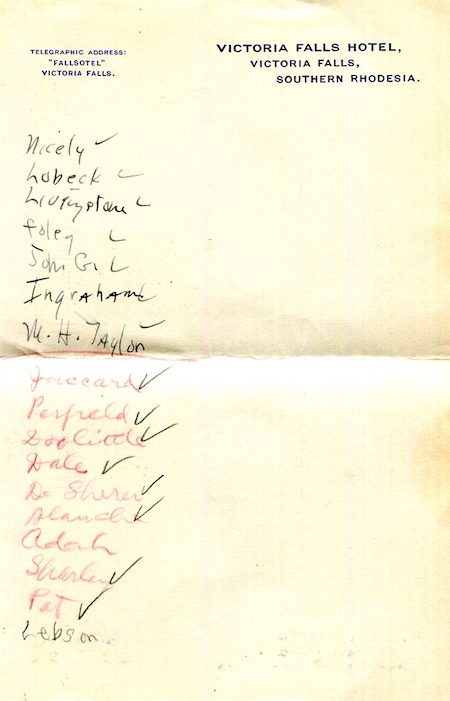 TELEGRAPHIC ADDRESS:
"FALLSOTEL"
VICTORIA FALLS.
VICTORIA FALLS HOTEL,
VICTORIA FALLS,
SOUTHERN RHODESIA.
Nicely ✓
Lobeck ✓
Livingstone ✓
Foley ✓
John G. ✓
Ingraham ✓
M. H. Taylor ✓
Jaccard ✓
Penfield ✓
Doolittle ✓
Dale ✓
De Sherer ✓
Blanche ✓
Adah
Sharley ✓
Pat ✓
Lebson